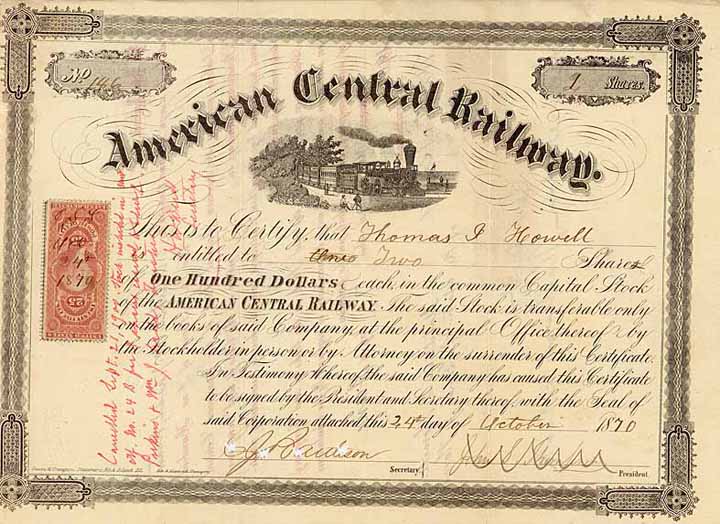 No 146
1 Shares.
American Central Railway.
This is to Certify, that Thomas J Howell
entitled to three Two Shares
One Hundred Dollars each, in the common Capital Stock
of the AMERICAN CENTRAL RAILWAY. The said Stock is transferable only
on the books of said Company, at the principal Office thereof by
the Stockholder in person or by Attorney on the surrender of this Certificate.
In Testimony Whereof, the said Company has caused this Certificate
to be signed by the President and Secretary thereof, with the Seal of
said Corporation, attached this 24th day of October 1870
Secretary.
President.
1870
25
Cancelled Sept 21